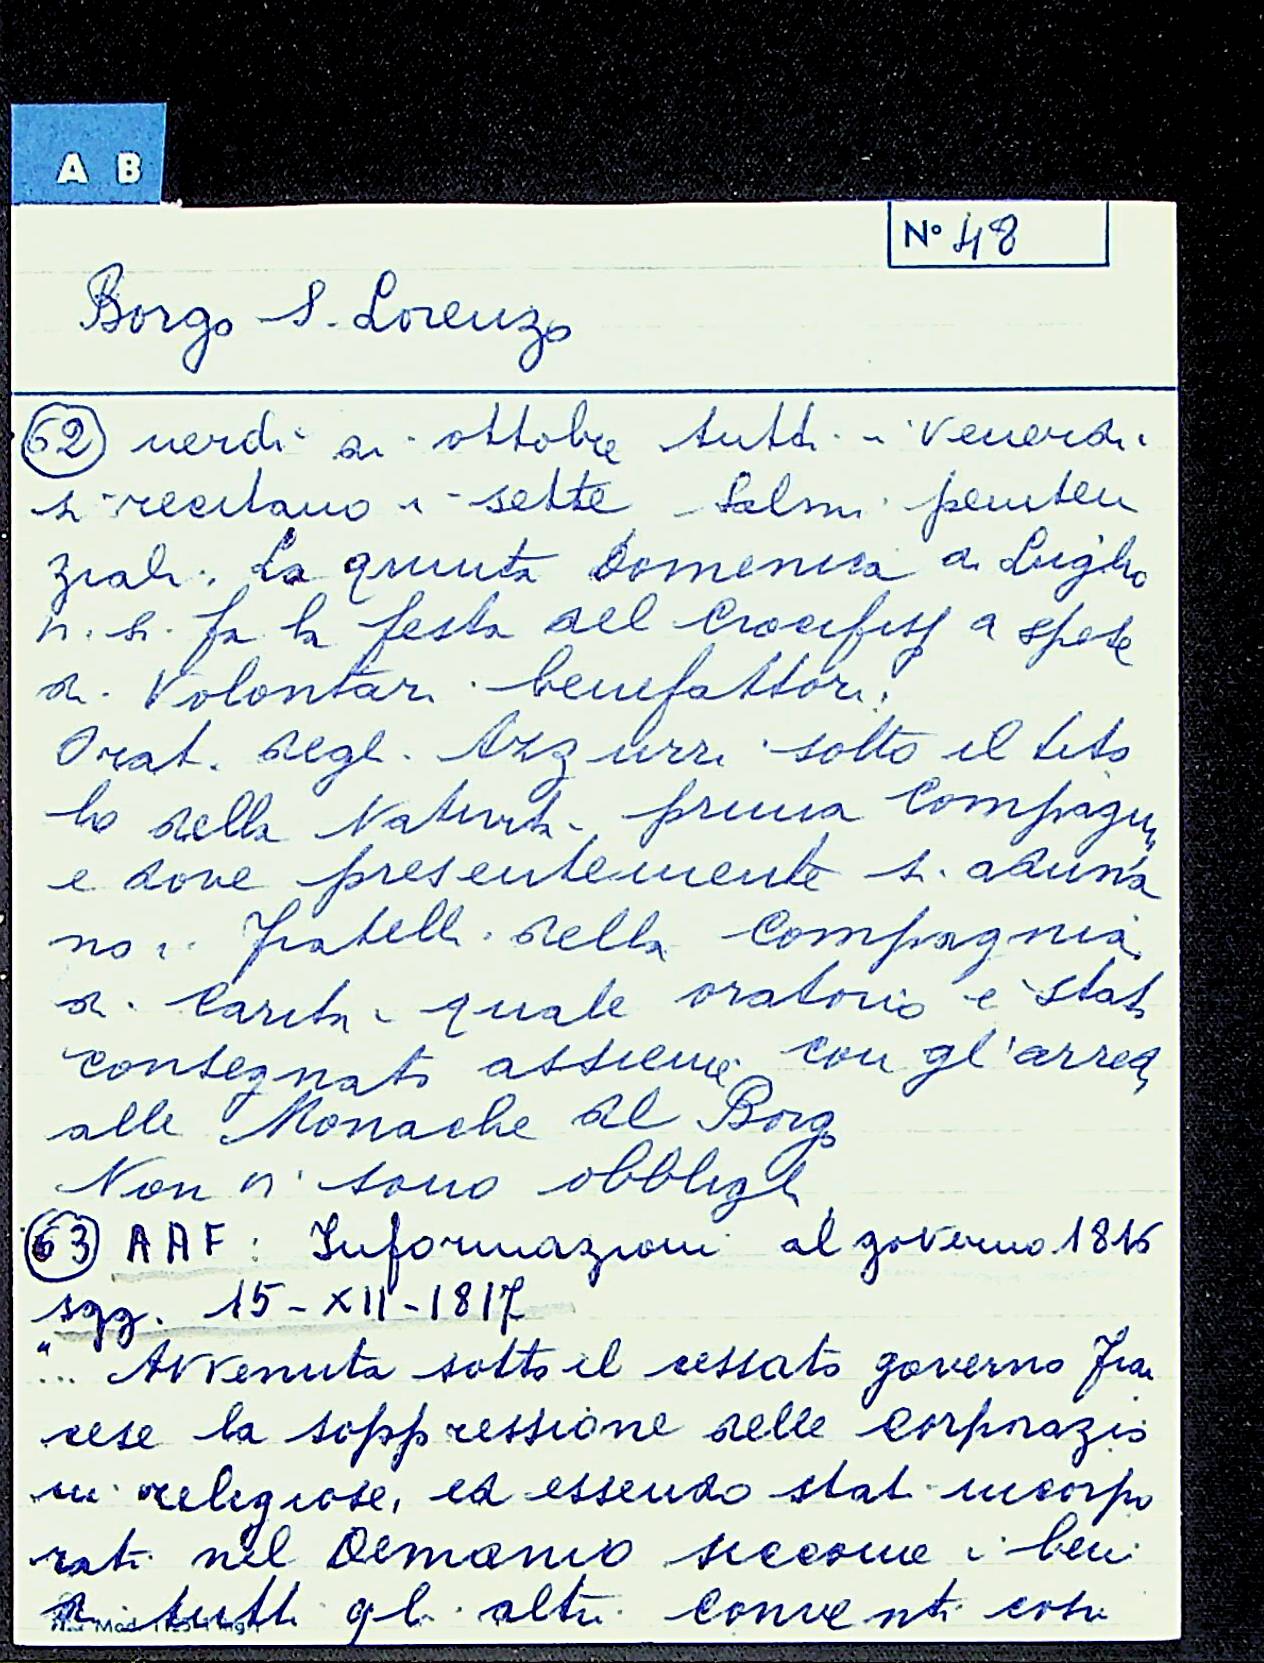 A B
N° 48
Borgo S. Lorenzo
62 nerdi di ottobre tutti i Venerdi
si recitano i sette Salmi peniten
ziali. La quinta Domenica di Luglio
vi si fa la festa del Crocifisso a spese
di Volontari benefattori.
Orat. degli Azzurri sotto il tito
lo della Natività prima Compagnia
e dove presentemente si aduna
no i Fratelli della Compagnia
di Carità quale oratorio è stato
consegnato assieme con gl'arredi
alle Monache del Borgo
Non vi sono obblighi
63 AAF: Informazioni al governo 1816
sgg. 15-XII-1817
"... Avvenuta sotto il cessato governo Fran
cese la soppressione delle Corporazio
ni religiose, ed essendo stati incorpo
rati nel Demanio siccome i beni
di tutti gli altri Conventi così